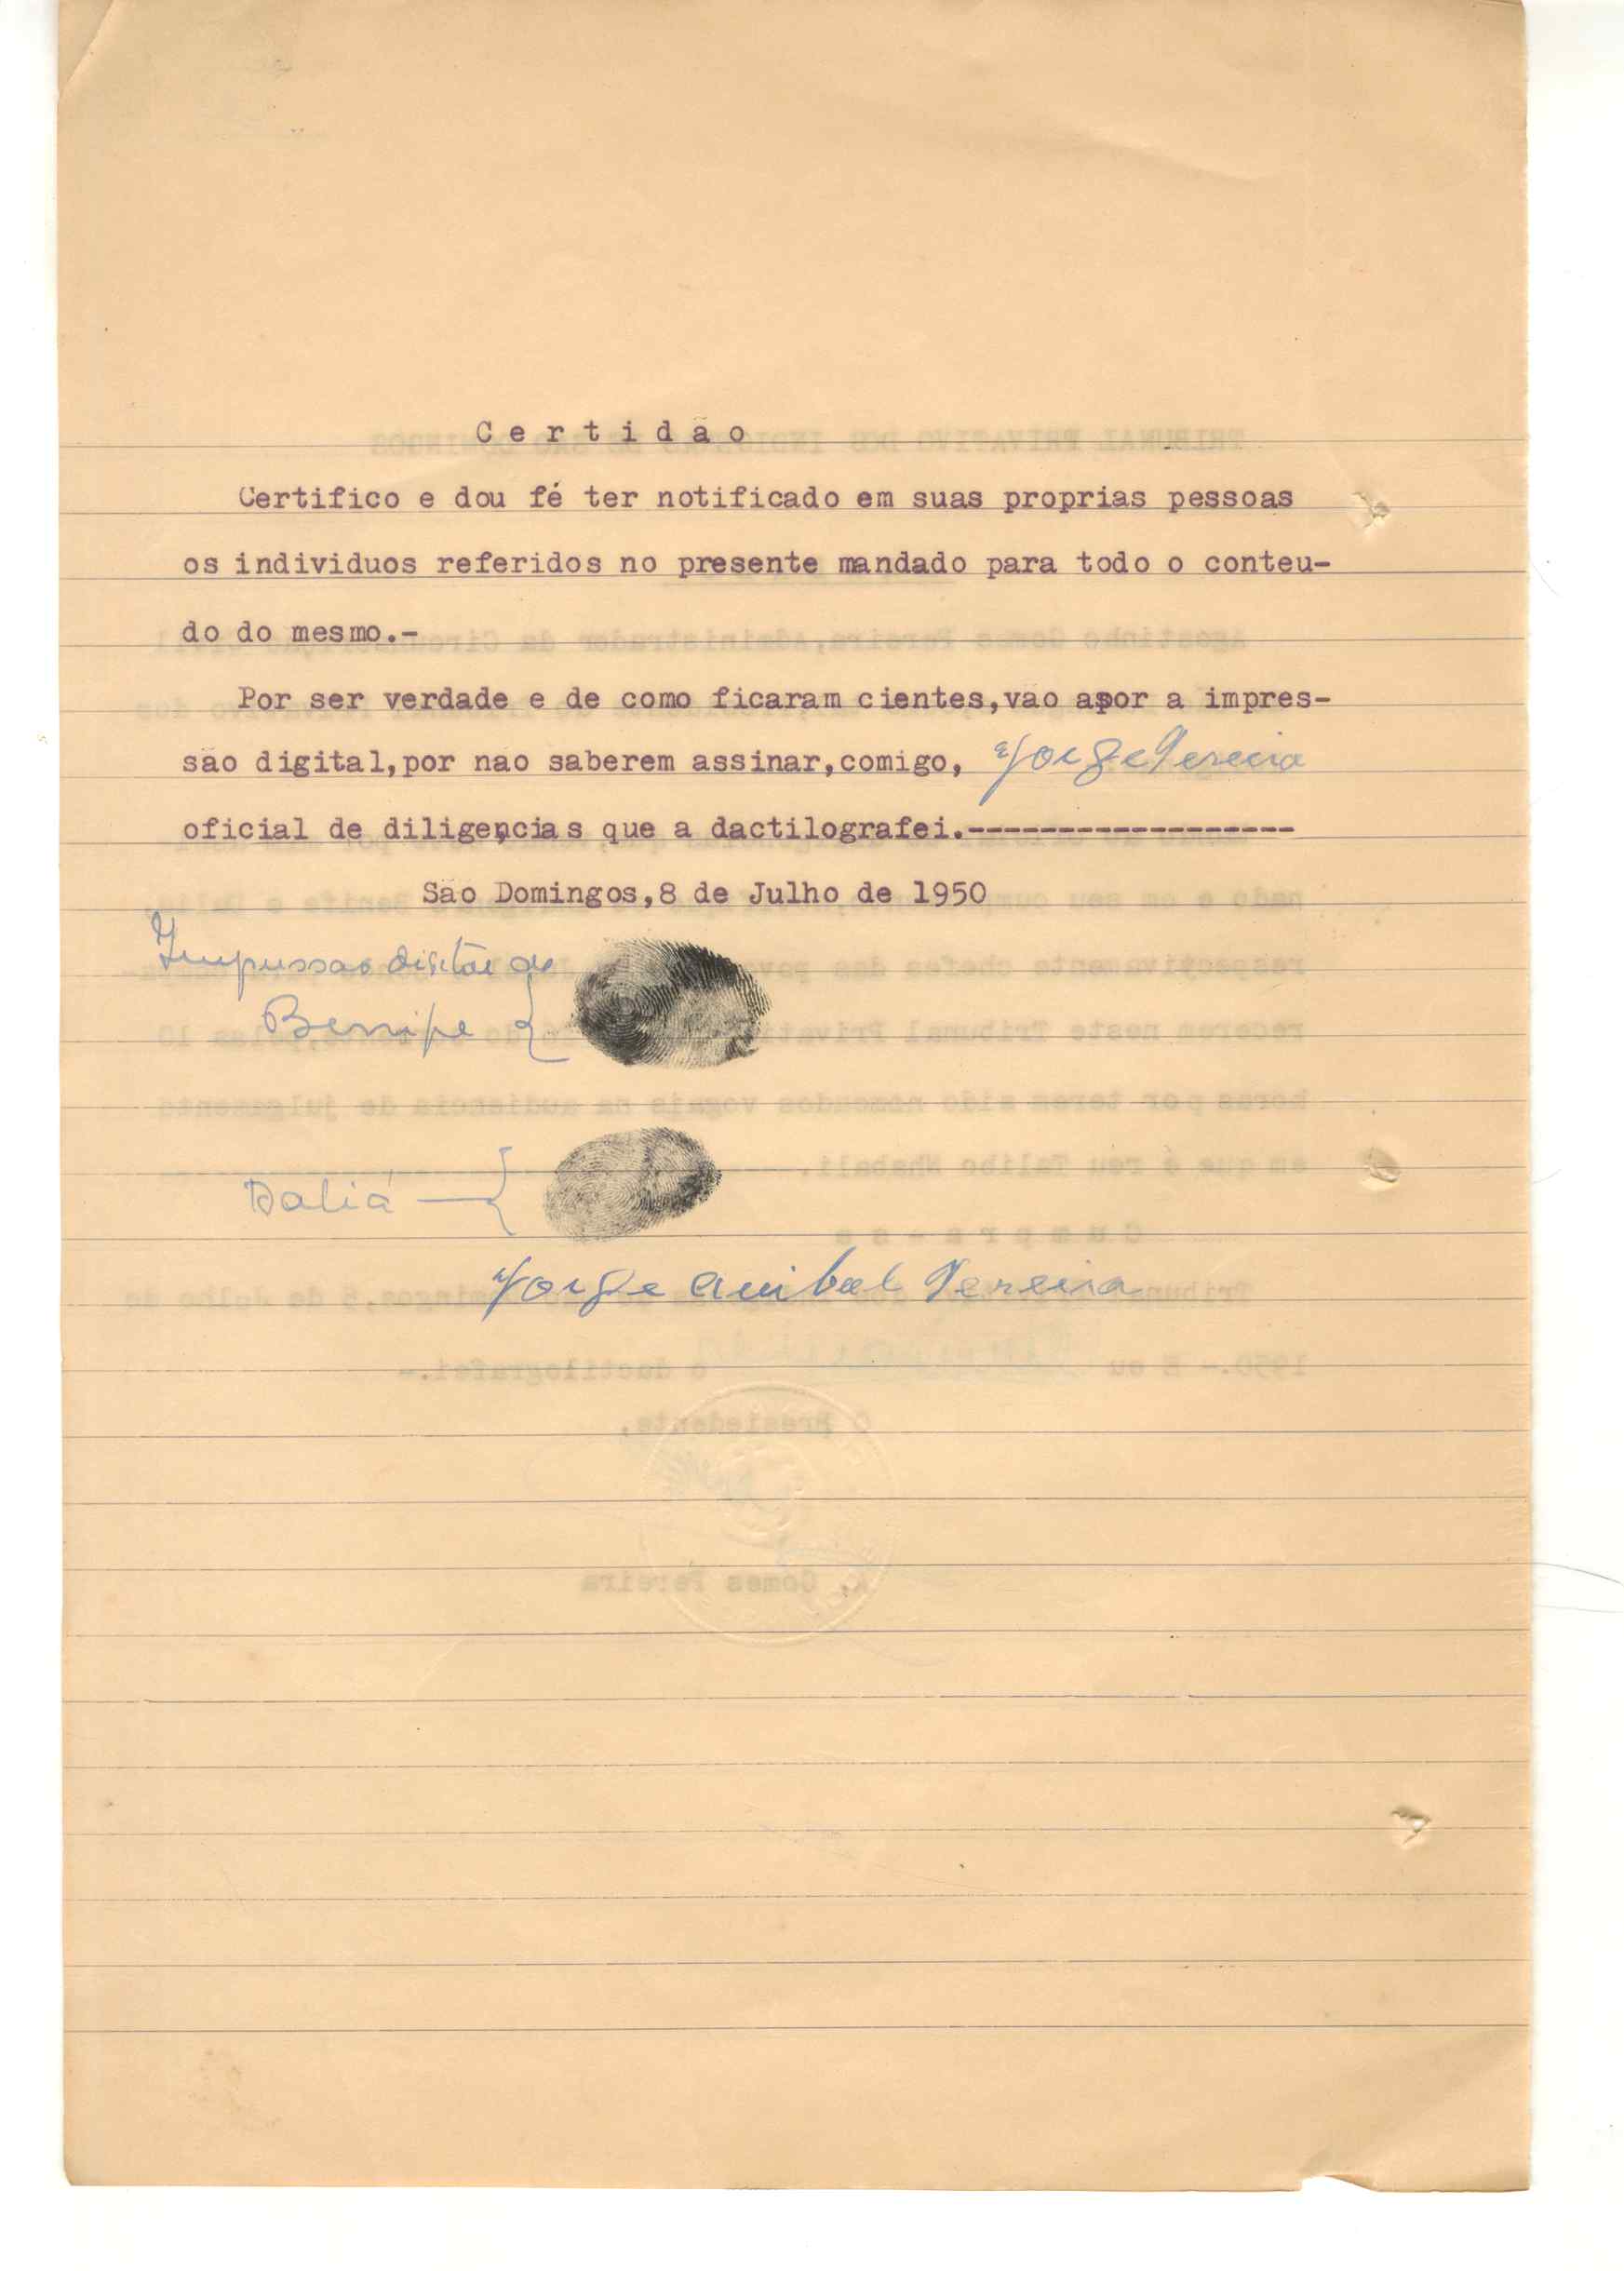 Certidão
Certifico e dou fé ter notificado em suas proprias pessoas
os individuos referidos no presente mandado para todo o conteu-
do do mesmo.-
Por ser verdade e de como ficaram cientes,vão apor a impres-
são digital,por não saberem assinar,comigo, Jorge Pereira
oficial de diligencias que a dactilografei.------------------
São Domingos,8 de Julho de 1950
Impressão digital de
Benipe
Daliá
Jorge Anibal Pereira